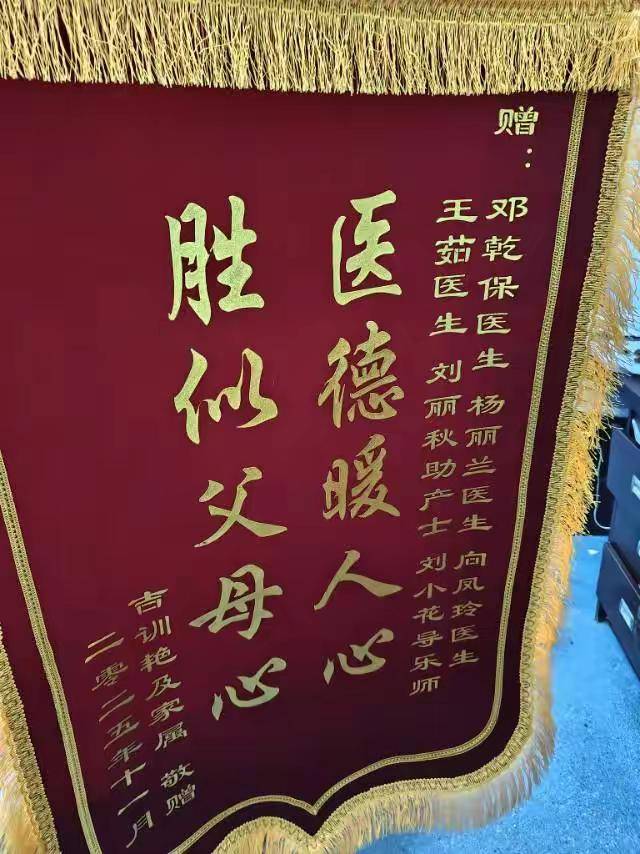 赠：
邓乾保医生 杨丽兰医生 向凤玲医生
王茹医生 刘丽秋助产士 刘小花导乐师
医德暖人心
胜似父母心
吉训艳及家属 敬赠
二零二五年十一月